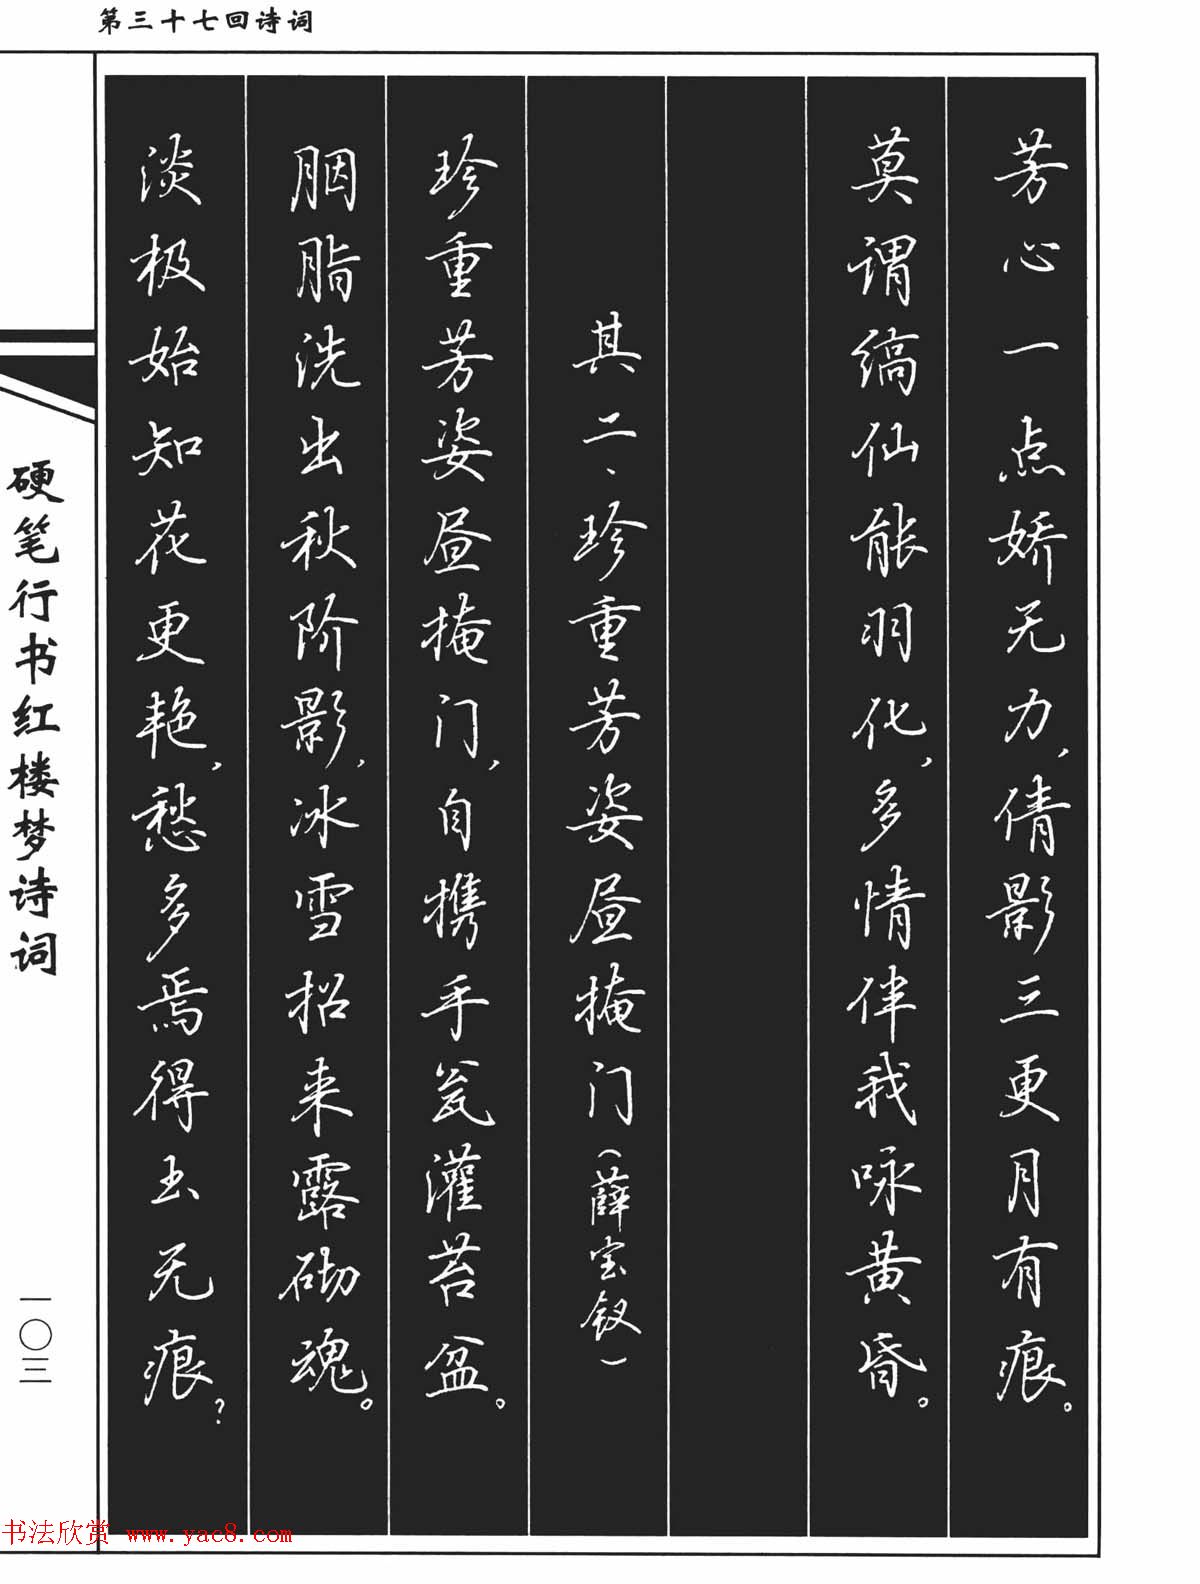 第三十七回诗词
芳心一点娇无力，倩影三更月有痕。
莫谓缟仙能羽化，多情伴我咏黄昏。
其二、珍重芳姿昼掩门（薛宝钗）
珍重芳姿昼掩门，自携手瓮灌苔盆。
胭脂洗出秋阶影，冰雪招来露砌魂。
淡极始知花更艳，愁多焉得玉无痕？
硬笔行书红楼梦诗词
一〇三
书法欣赏 www.yac8.com